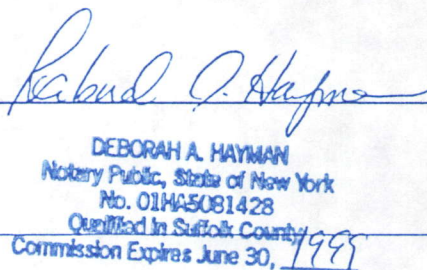 Deborah A. Hayman
DEBORAH A. HAYMAN
Notary Public, State of New York
No. 01HA5081428
Qualified in Suffolk County
Commission Expires June 30, 1999